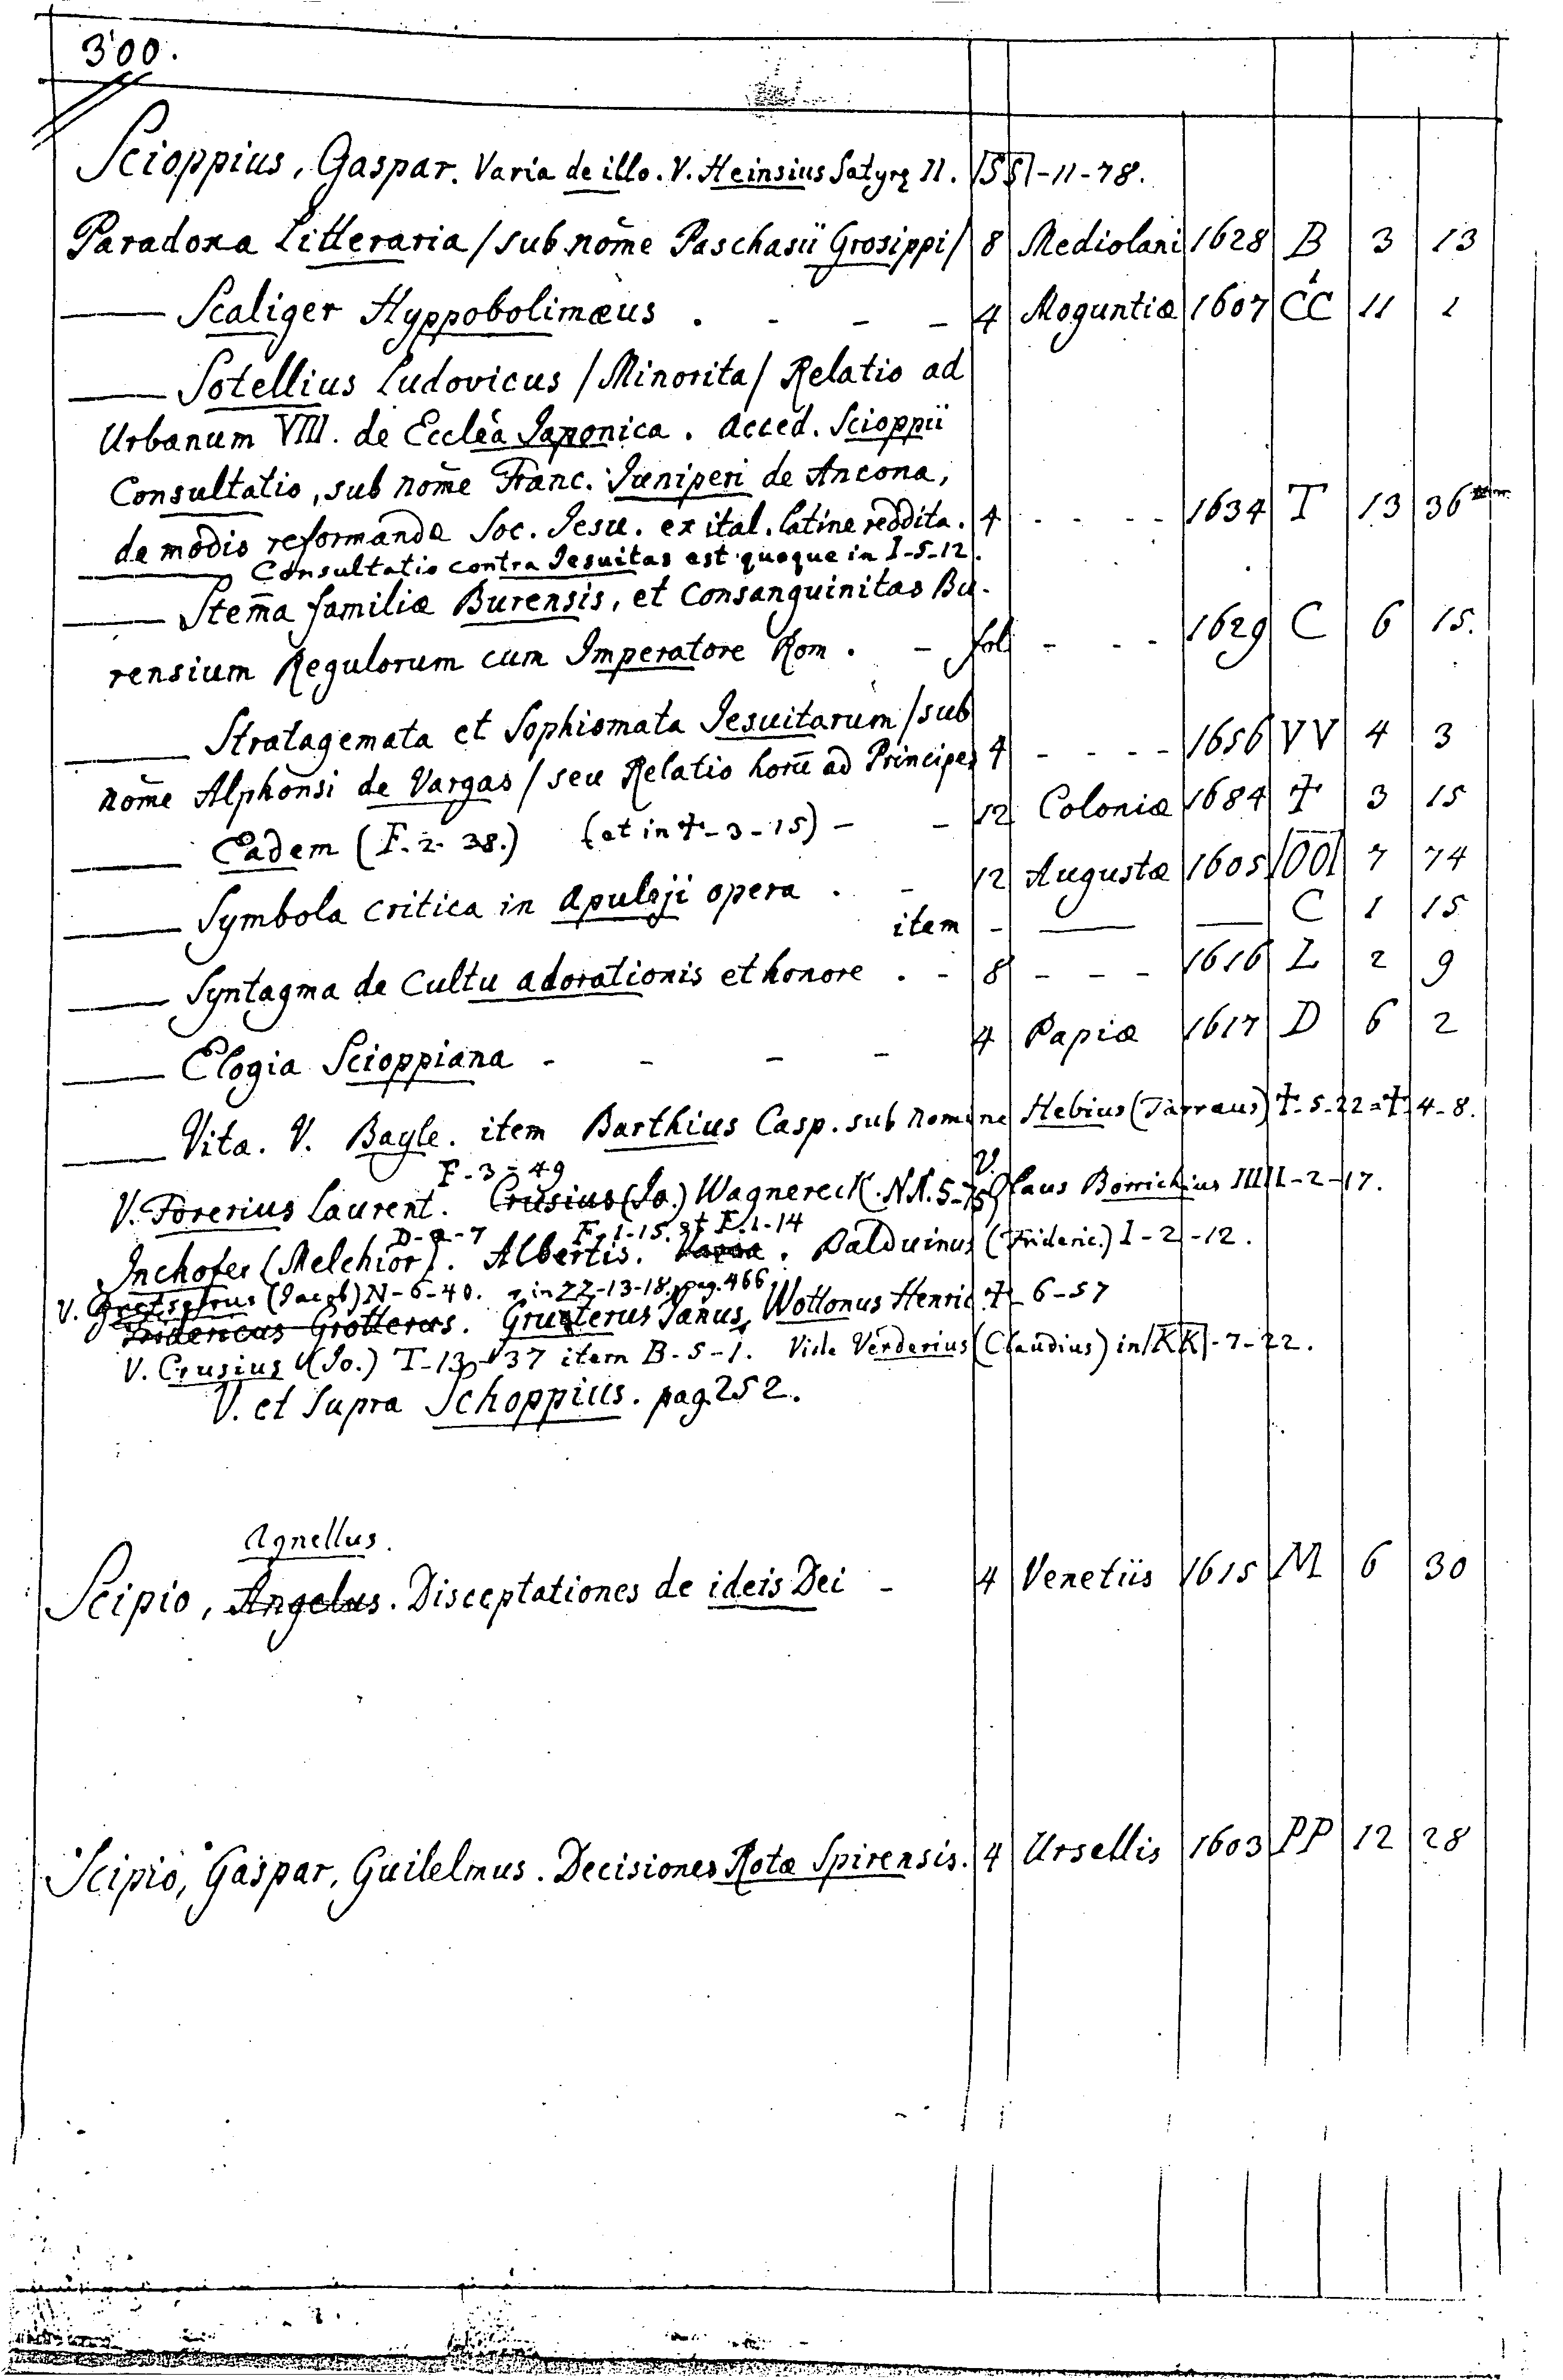 300.
Scioppius, Gaspar. Varia de illo. V. Heinsius Satyrę II. |SS|-11-78.
Paradoxa Litteraria /sub nom̄e Paschasii Grosippi/ 8 Mediolani 1628 B 3 13
—— Scaliger Hyppobolimæus . - - - 4 Moguntiæ 1607 CC 11 1
—— Sotellius Ludovicus /Minorita/ Relatio ad
Urbanum VIII. de Eccleã Japonica. Acced. Scioppii
Consultatio, sub nom̄e Franc. Juniperi de Ancona,
de modis reformandæ Soc. Jesu. ex ital. latine reddita. 4 - - - - 1634 T 13 36
Consultatio contra Jesuitas est quoque in I-5-12.
—— Stem̄a familiæ Burensis, et Consanguinitas Bu-
rensium Regulorum cum Imperatore Rom. - fol - - - 1629 C 6 15.
—— Stratagemata et Sophismata Jesuitarum /sub
nom̄e Alphonsi de Vargas/ seu Relatio horū ad Principes 4 - - - - 1656 VV 4 3
—— Eadem (F. 2. 38.) (et in Ɨ-3-15) - - 12 Coloniæ 1684 Ɨ 3 15
—— Symbola critica in Apuleji opera . - 12 Augustæ 1605 |OO| 7 74
item - —— —— C 1 15
—— Syntagma de Cultu adorationis et honore . - 8 - - - 1616 L 2 9
—— Elogia Scioppiana - - - - 4 Papiæ 1617 D 6 2
—— Vita. V. Bayle. item Barthius Casp. sub nomine Hebius (Tarraus) Ɨ-5-22=Ɨ-4-8.
F-3-49 V.
V. Forerius Laurent. Crusius (Jo.) Wagnereck. NN.5-75 Olaus Borrichius IIII-2-17.
D-2-7 F-1-15. et F.1-14
Inchofer (Melchior). Albertis. . Balduinus (Frideric.) I-2-12.
V. Gretserus (Jacob) N-6-40. in ZZ-13-18. pag. 466
Fridericus Grotterus. Gruterus Janus, Wottonus Henric. Ɨ-6-57
V. Crusius (Jo.) T-13-37 item B-5-1. Vide Verderius (Claudius) in |KK|-7-22.
V. et Supra Schoppius. pag. 252.
Agnellus.
Scipio, Angelus. Disceptationes de ideis Dei - 4 Venetiis 1615 M 6 30
Scipio, Gaspar, Guilelmus. Decisiones Rotæ Spirensis. 4 Ursellis 1603 PP 12 28